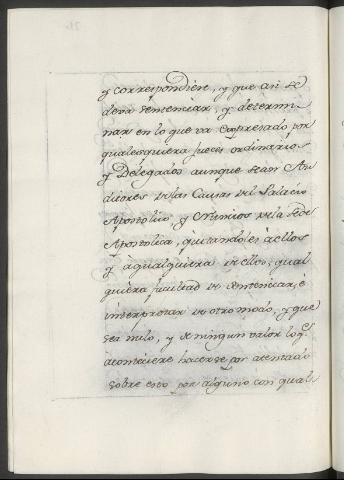 y correspondiere, y que asi se
deva sentenciar, y determi-
nar en lo que va expresado por
qualesquiera Jueces ordinarios
y Delegados aunque sean Au-
ditores de las Causas del Palacio
Apostolico y Nuncios de la Sede
Apostolica, quitandoles à ellos
y à qualquiera de ellos, qual-
quiera facultad de sentenciar, é
interpretar de otro modo, y que
sea nulo, y de ningun valor lo q.e
aconteciere hacerse por atentado
sobre esto por alguno con qual-